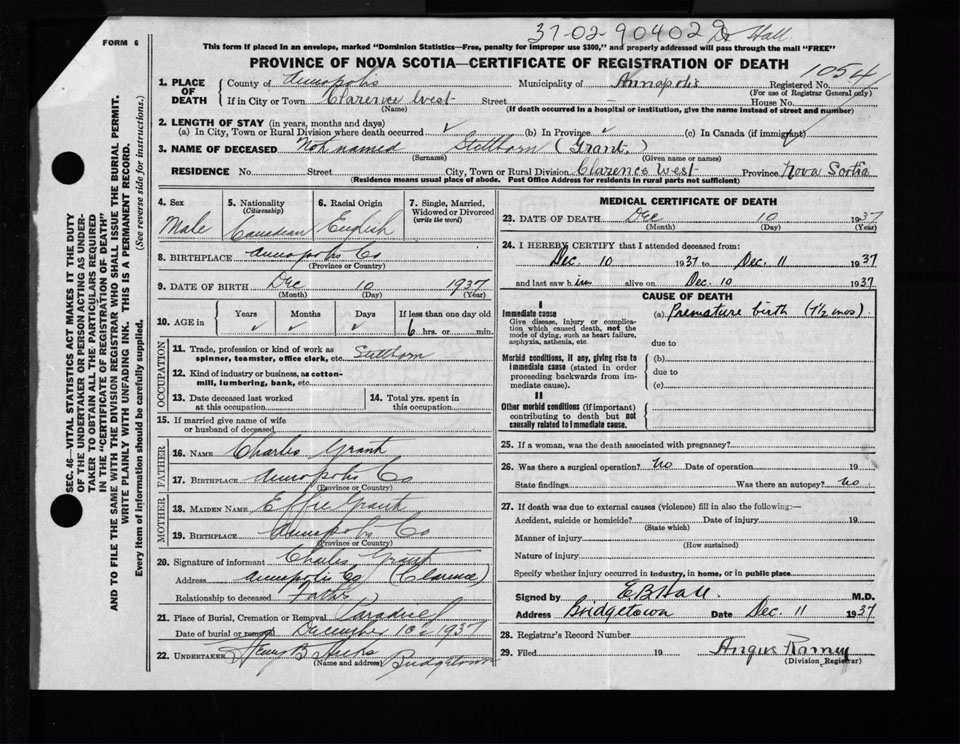 37-02-90402 Dr Hall
FORM 6
This form if placed in an envelope, marked "Dominion Statistics—Free, penalty for improper use $300," and properly addressed will pass through the mail "FREE"
PROVINCE OF NOVA SCOTIA—CERTIFICATE OF REGISTRATION OF DEATH
1054
1. PLACE OF DEATH County of Annapolis Municipality of Annapolis Registered No.
(For use of Registrar General only)
If in City or Town Clarence West Street House No.
(Name) (If death occurred in a hospital or institution, give the name instead of street and number)
2. LENGTH OF STAY (in years, months and days)
(a) In City, Town or Rural Division where death occurred ✓ (b) In Province ✓ (c) In Canada (if immigrant) ✓
3. NAME OF DECEASED Not named Stillborn (Grant.)
(Surname) (Given name or names)
RESIDENCE No. Street City, Town or Rural Division Clarence West Province Nova Scotia
(Residence means usual place of abode. Post Office Address for residents in rural parts not sufficient)
SEC. 46—VITAL STATISTICS ACT MAKES IT THE DUTY
OF THE UNDERTAKER OR PERSON ACTING AS UNDER-
TAKER TO OBTAIN ALL THE PARTICULARS REQUIRED
IN THE "CERTIFICATE OF REGISTRATION OF DEATH"
AND TO FILE THE SAME WITH THE DIVISION REGISTRAR WHO SHALL ISSUE THE BURIAL PERMIT.
WRITE PLAINLY WITH UNFADING INK. THIS IS A PERMANENT RECORD.
Every item of information should be carefully supplied. (See reverse side for instructions.)
4. Sex 5. Nationality (Citizenship) 6. Racial Origin 7. Single, Married, Widowed or Divorced (write the word)
Male Canadian English
8. BIRTHPLACE Annapolis Co
(Province or Country)
9. DATE OF BIRTH Dec 10 1937
(Month) (Day) (Year)
10. AGE in Years Months Days If less than one day old
✓ ✓ ✓ 6 hrs. or min.
OCCUPATION
11. Trade, profession or kind of work as spinner, teamster, office clerk, etc. Stillborn
12. Kind of industry or business, as cotton-mill, lumbering, bank, etc.
13. Date deceased last worked at this occupation
14. Total yrs. spent in this occupation
15. If married give name of wife or husband of deceased
FATHER
16. NAME Charles Grant
17. BIRTHPLACE Annapolis Co
(Province or Country)
MOTHER
18. MAIDEN NAME Effie Grant
19. BIRTHPLACE Annapolis Co
(Province or Country)
20. Signature of informant Charles Grant
Address Annapolis Co (Clarence)
Relationship to deceased Father
21. Place of Burial, Cremation or Removal Paradise
Date of burial or removal December 10 1937
22. UNDERTAKER Henry B Hicks Bridgetown
(Name and address)
MEDICAL CERTIFICATE OF DEATH
23. DATE OF DEATH Dec 10 1937
(Month) (Day) (Year)
24. I HEREBY CERTIFY that I attended deceased from:
Dec. 10 1937 to Dec. 11 1937
and last saw him alive on Dec. 10 1937
CAUSE OF DEATH
I
Immediate cause
Give disease, injury or complication which caused death, not the mode of dying, such as heart failure, asphyxia, asthenia, etc.
(a) Premature birth (7½ mos)
due to
Morbid conditions, if any, giving rise to immediate cause (stated in order proceeding backwards from immediate cause).
(b)
due to
(c)
II
Other morbid conditions (if important) contributing to death but not causally related to immediate cause.
25. If a woman, was the death associated with pregnancy?
26. Was there a surgical operation? No Date of operation 19
State findings Was there an autopsy? No
27. If death was due to external causes (violence) fill in also the following:—
Accident, suicide or homicide? Date of injury 19
(State which)
Manner of injury
(How sustained)
Nature of injury
Specify whether injury occurred in industry, in home, or in public place
Signed by E B Hall. M.D.
Address Bridgetown Date Dec. 11 1937
28. Registrar's Record Number
29. Filed 19 Angus Ramey
(Division Registrar)